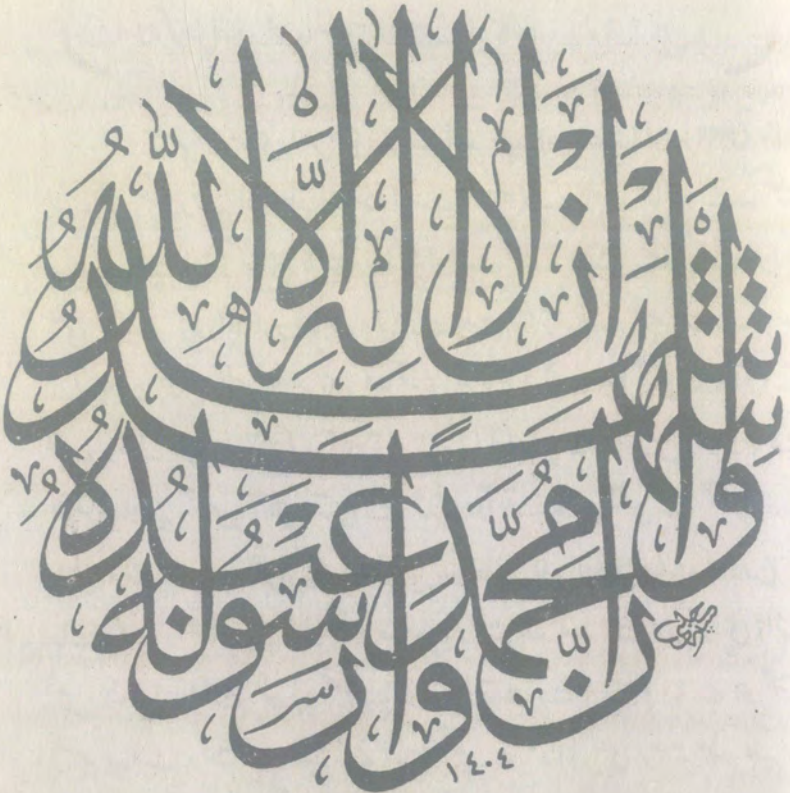 اَشْهَدُ اَنْ لَا اِلٰهَ اِلَّا اللّٰهُ
وَاَشْهَدُ اَنَّ مُحَمَّدًا عَبْدُهُ وَرَسُولُهُ
١٤٠٤